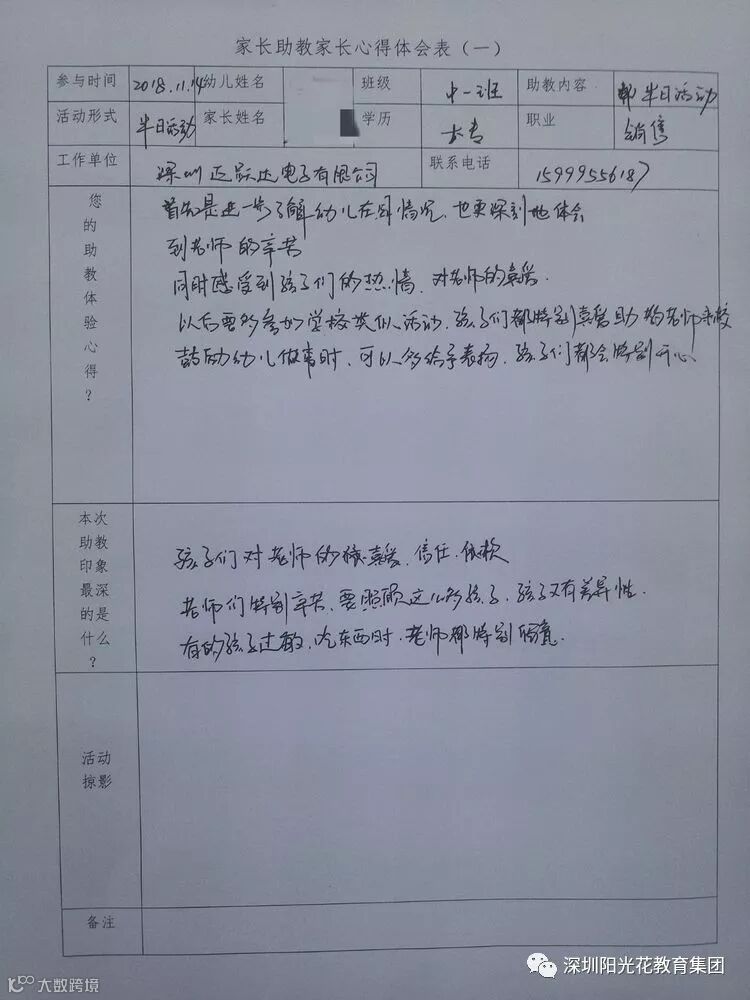 家长助教家长心得体会表（一）
参与时间 2018.11.14 幼儿姓名 班级 中一班 助教内容 半日活动
活动形式 半日活动 家长姓名 学历 大专 职业 销售
工作单位 深圳 跃达电子有限公司 联系电话 15999556187
您的助教体验心得？
首先是进一步了解幼儿在园情况，也更深刻地体会
到老师的辛苦
同时感受到孩子们的热情，对老师的喜爱.
以后要多参加学校类似活动，孩子们都特别喜爱助 老师来校
鼓励幼儿做事时，可以多给予表扬，孩子们都会特别开心
本次助教印象最深的是什么？
孩子们对老师的 喜爱、信任、依赖
老师们特别辛苦，要照顾这么多孩子，孩子又有差异性.
有的孩子过敏，吃东西时，老师都特别留意.
活动掠影
备注
深圳阳光花教育集团
大数跨境